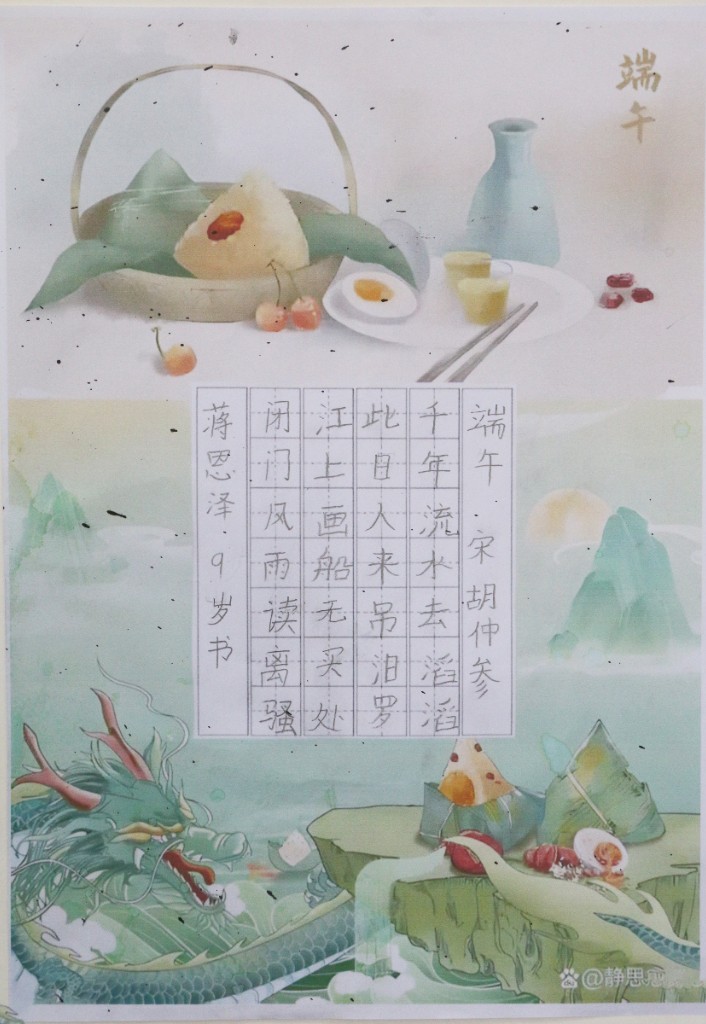 端午
端午 宋 胡仲参
千年流水去滔滔
此日人来吊汨罗
江上画船无买处
闭门风雨读离骚
蒋恩泽 9岁书
@静思